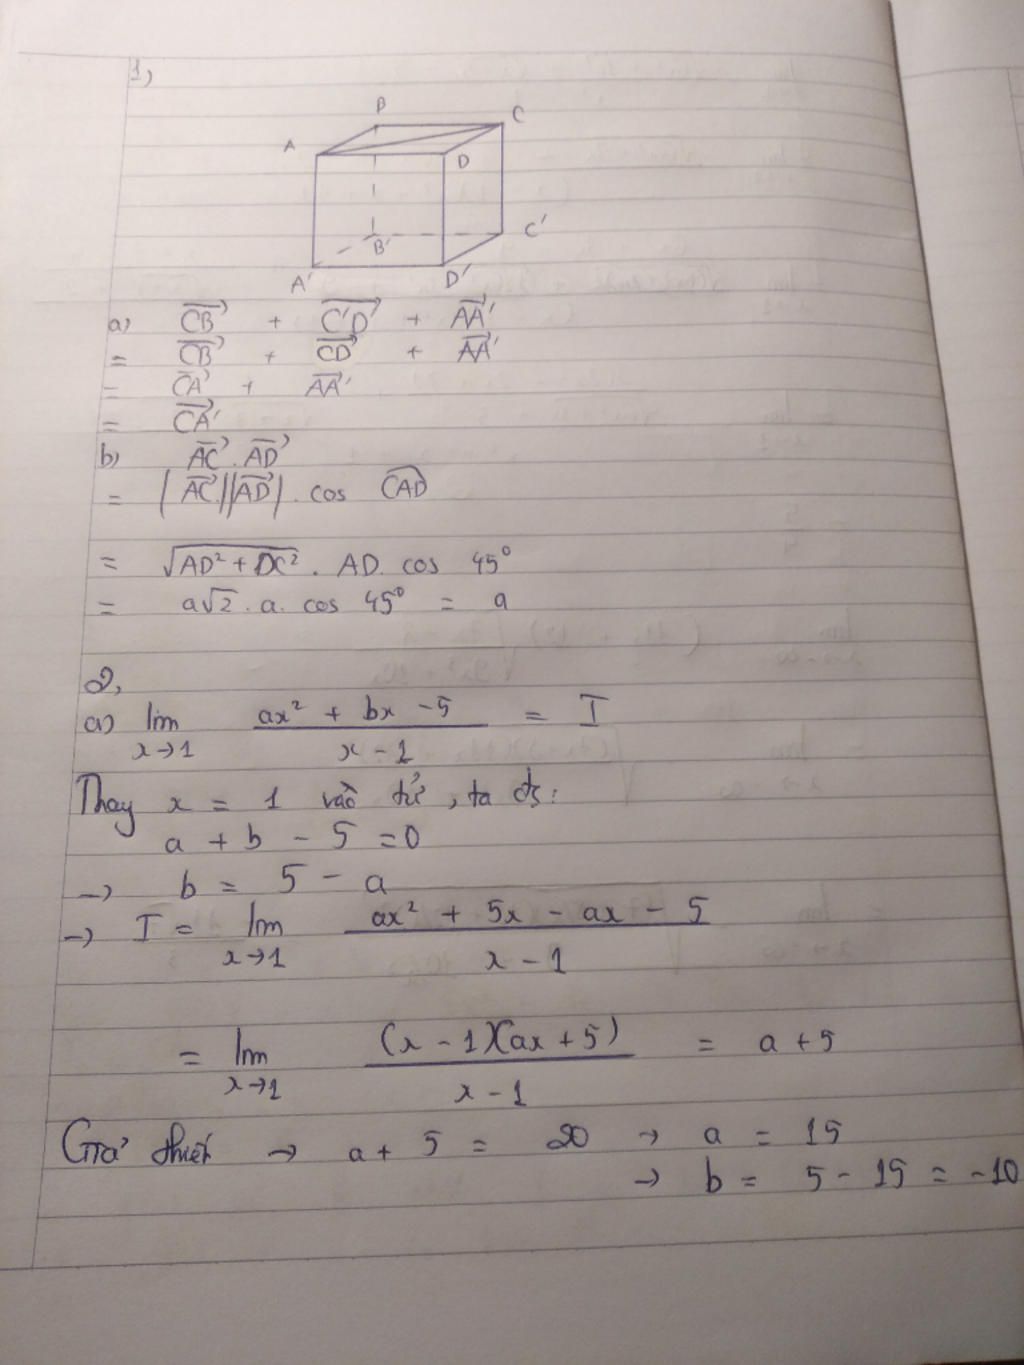 1)
B
C
A
D
B'
C'
A'
D'
a) CB + C'D' + AA'
= CB + CD + AA'
= CA + AA'
= CA'
b) AC . AD
= |AC||AD| . cos CAD
= √AD² + DC² . AD . cos 45°
= a√2 . a . cos 45° = a
2,
a) lim x→1 ax² + bx - 5 / x - 1 = I
Thay x = 1 vào tử, ta đc:
a + b - 5 = 0
→ b = 5 - a
→ I = lim x→1 ax² + 5x - ax - 5 / x - 1
= lim x→1 (x - 1)(ax + 5) / x - 1 = a + 5
Giả thiết → a + 5 = 20 → a = 15
→ b = 5 - 15 = -10